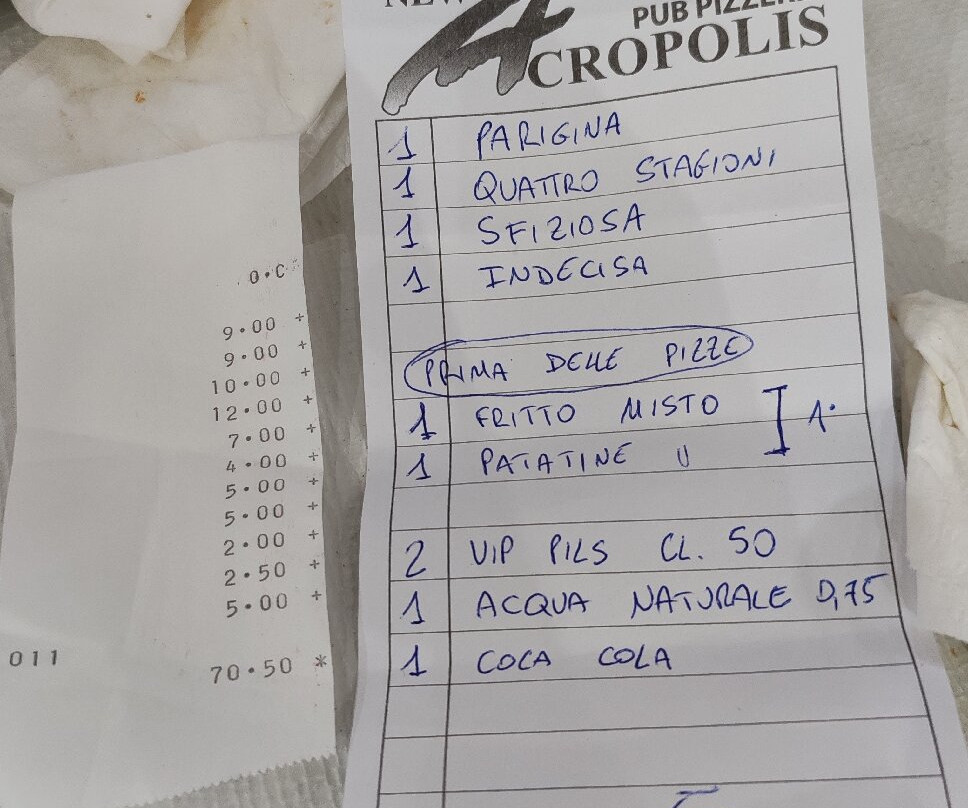 0.C
9.00 +
9.00 +
10.00 +
12.00 +
7.00 +
4.00 +
5.00 +
5.00 +
2.00 +
2.50 +
5.00 +
011 70.50 *
NEW
PUB PIZZERI
ACROPOLIS
1 PARIGINA
1 QUATTRO STAGIONI
1 SFIZIOSA
1 INDECISA
PRIMA DELLE PIZZE
1 FRITTO MISTO
1 PATATINE U
1·
2 VIP PILS CL. 50
1 ACQUA NATURALE 0,75
1 COCA COLA